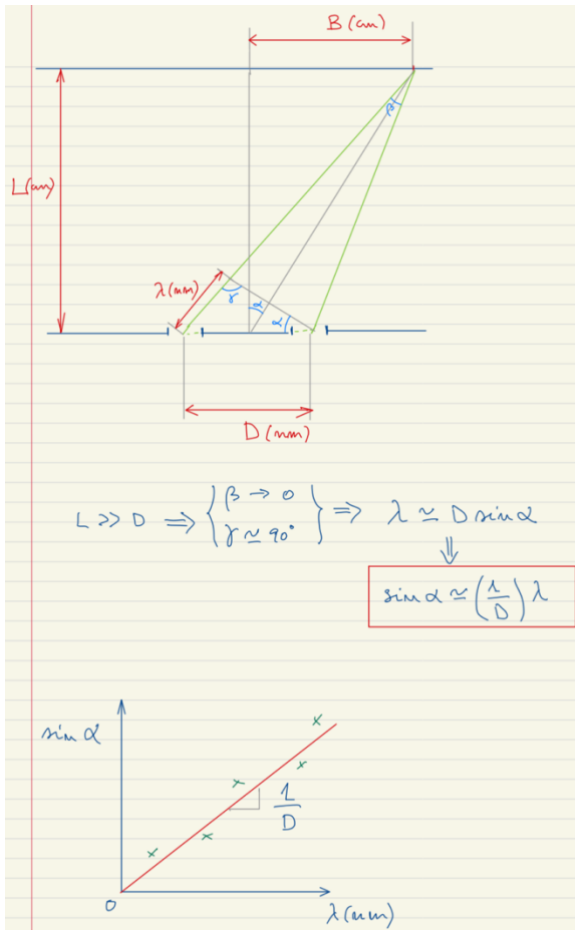 B (cm)
β
L (cm)
λ (nm)
γ
α
α
D (nm)
L >> D ⇒ { β → 0 γ ≃ 90° } ⇒ λ ≃ D sin α
⇓
sin α ≃ (1/D) λ
sin α
1/D
0
λ (nm)